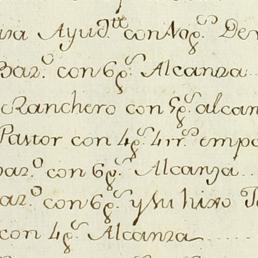 Ayud.te con Nog.s De
Baz.o con 6 g.s Alcanza
Ranchero con 5 g.s alcan
Pastor con 4 g.s 4 rr.s empe
baz.o con 6 g.s Alcanza
az.o con 6 g.s y su hixo
con 4 g.s Alcanza